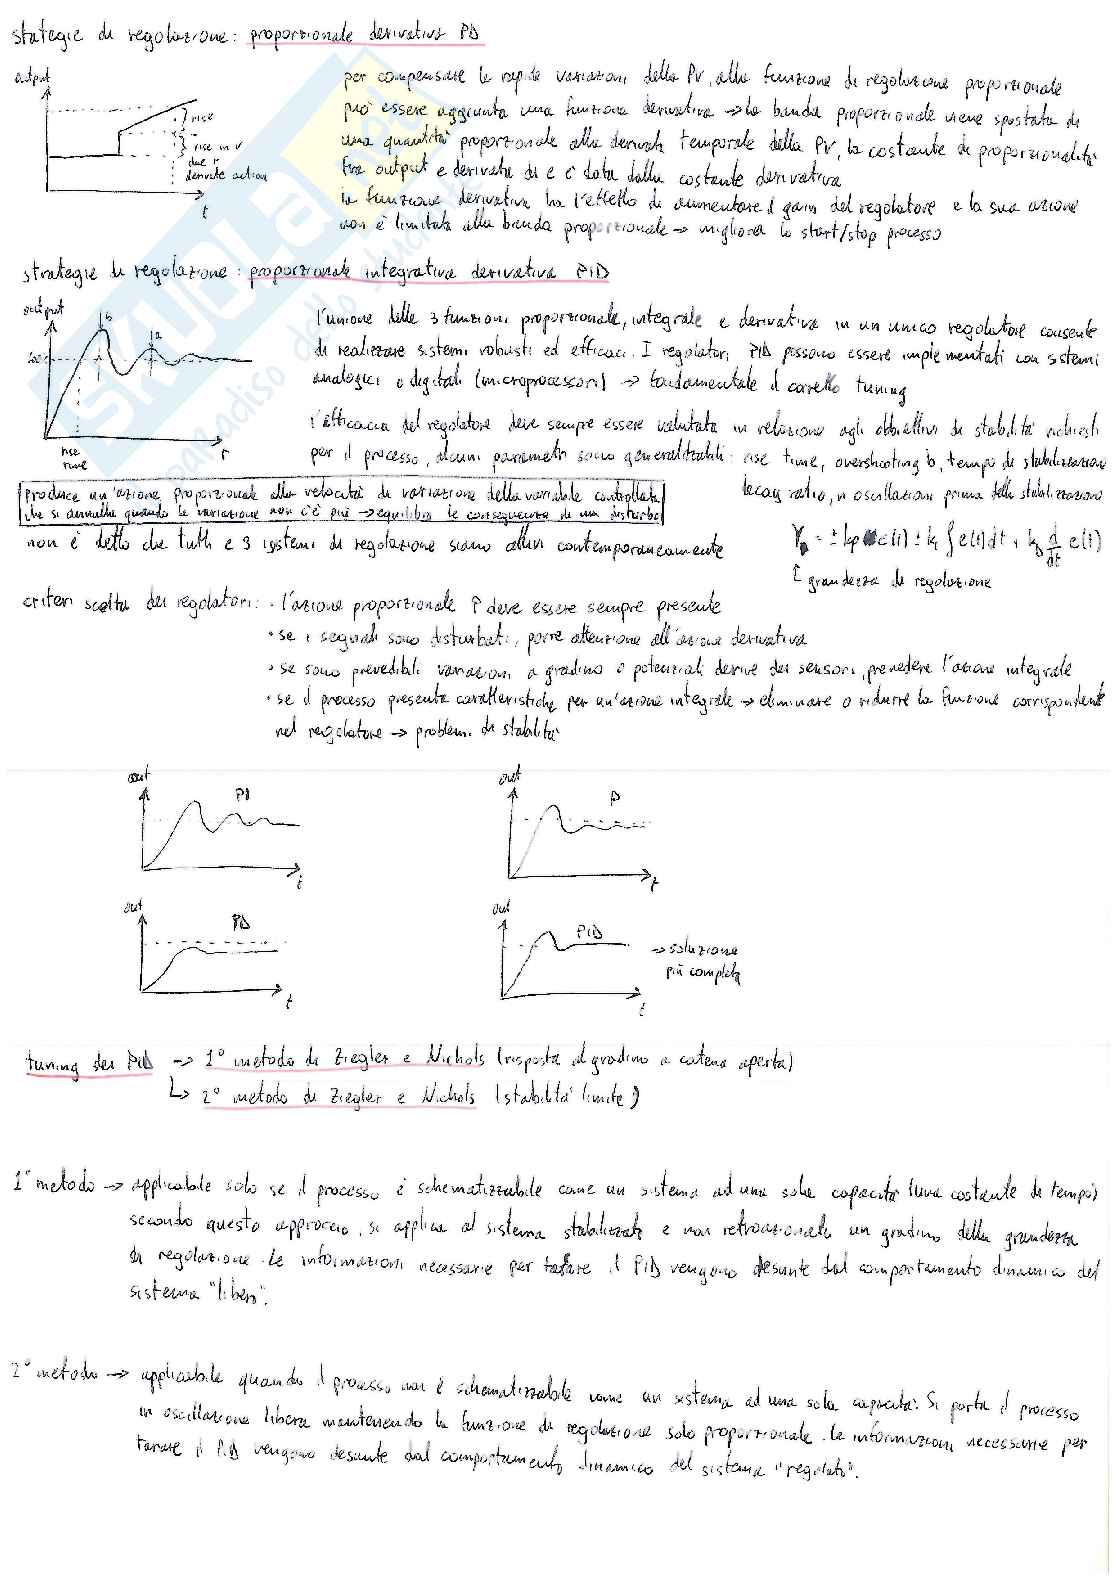 stategie di regolazione: proporzionale derivativa PD
output
rise
rise in V
due r
derivate action
t
per compensare le rapide variazioni della PV, alla funzione di regolazione proporzionale
può essere aggiunta una funzione derivativa → la banda proporzionale viene spostata di
una quantità proporzionale alla derivata temporale della PV, la costante di proporzionalità
tra output e derivata di e è data dalla costante derivativa
la funzione derivativa ha l'effetto di aumentare il gain del regolatore e la sua azione
non è limitata alla banda proporzionale → migliora lo start/stop processo
strategie di regolazione: proporzionale integrativa derivativa PID
output
b
a
rise
time
t
l'unione delle 3 funzioni proporzionale, integrale e derivativa in un unico regolatore consente
di realizzare sistemi robusti ed efficaci. I regolatori PID possono essere implementati con sistemi
analogici o digitali (microprocessori) → fondamentale il corretto tuning
l'efficacia del regolatore deve sempre essere valutata in relazione agli obbiettivi di stabilità richiesti
per il processo, alcuni parametri sono generalizzabili: rise time, overshooting b, tempo di stabilizzazione
decay ratio, n oscillazioni prima della stabilizzazione
produce un'azione proporzionale alla velocità di variazione della variabile controllata
che si annulla quando la variazione non c'è più → equilibra le conseguenze di un disturbo
non è detto che tutti e 3 sistemi di regolazione siano attivi contemporaneamente
= ± kp e(t) ± ki ∫ e(t) dt + kD d/dt e(t)
↑ grandezza di regolazione
criteri scelta dei regolatori: • l'azione proporzionale P deve essere sempre presente
• se i segnali sono disturbati, porre attenzione all'azione derivativa
• se sono prevedibili variazioni a gradino o potenziali derive dei sensori, prevedere l'azione integrale
• se il processo presenta caratteristiche per un'azione integrale → eliminare o ridurre la funzione corrispondente
nel regolatore → problemi di stabilità
out
PI
t
out
P
t
out
PD
t
out
PID
t
→ soluzione
più completa
tuning dei PID → 1° metodo di Ziegler e Nichols (risposta al gradino a catena aperta)
↳ 2° metodo di Ziegler e Nichols (stabilità limite)
1° metodo → applicabile solo se il processo è schematizzabile come un sistema ad una sola capacità (una costante di tempo)
secondo questo approccio, si applica al sistema stabilizzato e non retroazionato un gradino della grandezza
di regolazione. Le informazioni necessarie per tarare il PID vengono desunte dal comportamento dinamico del
sistema "libero".
2° metodo → applicabile quando il processo non è schematizzabile come un sistema ad una sola capacità. Si porta il processo
in oscillazione libera mantenendo la funzione di regolazione solo proporzionale. Le informazioni necessarie per
tarare il PID vengono desunte dal comportamento dinamico del sistema "regolato".